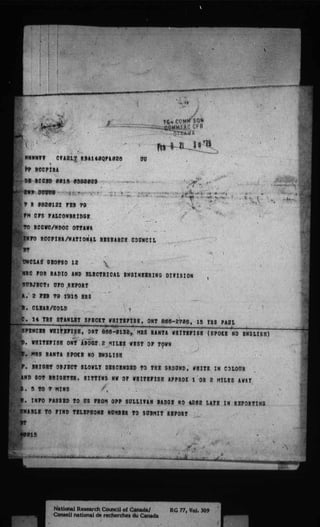 TC4 COMM SQN
COMMCEN CFB
OTTAWA
NNNNVV CVARLZ RBA140QFA026 UU
PP RCCPIRA
P R 052012Z FEB 79
FM CFS FALCONBRIDGE
TO RCCWC/NDOC OTTAWA
INFO RCCPIRA/NATIONAL RESEARCH COUNCIL
BT
UNCLAS GEOPSO 12
NRC FOR RADIO AND ELECTRICAL ENGINEERING DIVISION
SUBJECT: UFO REPORT
A. 2 FEB 79 1915 HRS
B. CLEAR/COLD
C. 14 YRS STANLEY SPROCKT WHITEFISH, ONT 866-2795, 15 YRS PAUL
SPENCER WHITEFISH, ONT 866-2132, MRS RANTA WHITEFISH (SPOKE NO ENGLISH)
D. WHITEFISH ONT ABOUT 2 MILES WEST OF TOWN
E. MRS RANTA SPOKE NO ENGLISH
F. BRIGHT OBJECT SLOWLY DESCENDED TO THE GROUND, WHITE IN COLOUR
AND GOT BRIGHTER. SITTING NW OF WHITEFISH APPROX 1 OR 2 MILES AWAY
G. 5 TO 7 MINS
H. INFO PASSED TO US FROM OPP SULLIVAN BADGE NO 4082 LATE IN REPORTING
UNABLE TO FIND TELEPHONE NUMBER TO SUBMIT REPORT
BT
#0015
National Research Council of Canada/
Conseil national de recherches du Canada
RG 77, Vol. 309